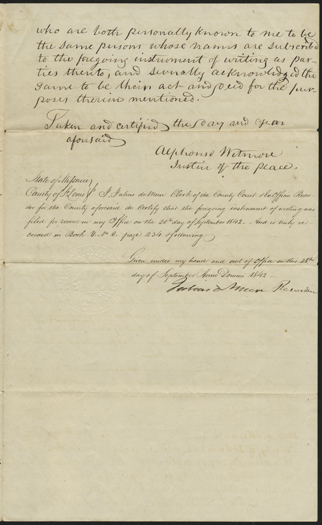 who are both personally known to me to be
the same persons whose names are subscribed
to the foregoing instrument of writing as par-
ties thereto, and severally acknowledged the
same to be their act and deed for the pur-
poses therein mentioned.
Taken and certified the day and year
aforesaid
Alphonso Wetmore
Justice of the peace.
State of Missouri
County of St Louis I Julius de Mun Clerk of the County Court & Ex Officio Recor-
der for the County aforesaid do Certify that the foregoing instrument of writing was
filed for record in my Office on the 20th day of September 1842. And is truly re-
corded in Book No 2. page 234 & following
Given under my hand and seal of Office on this 28th
day of September Anno Domini 1842
Julius de Mun Recorder